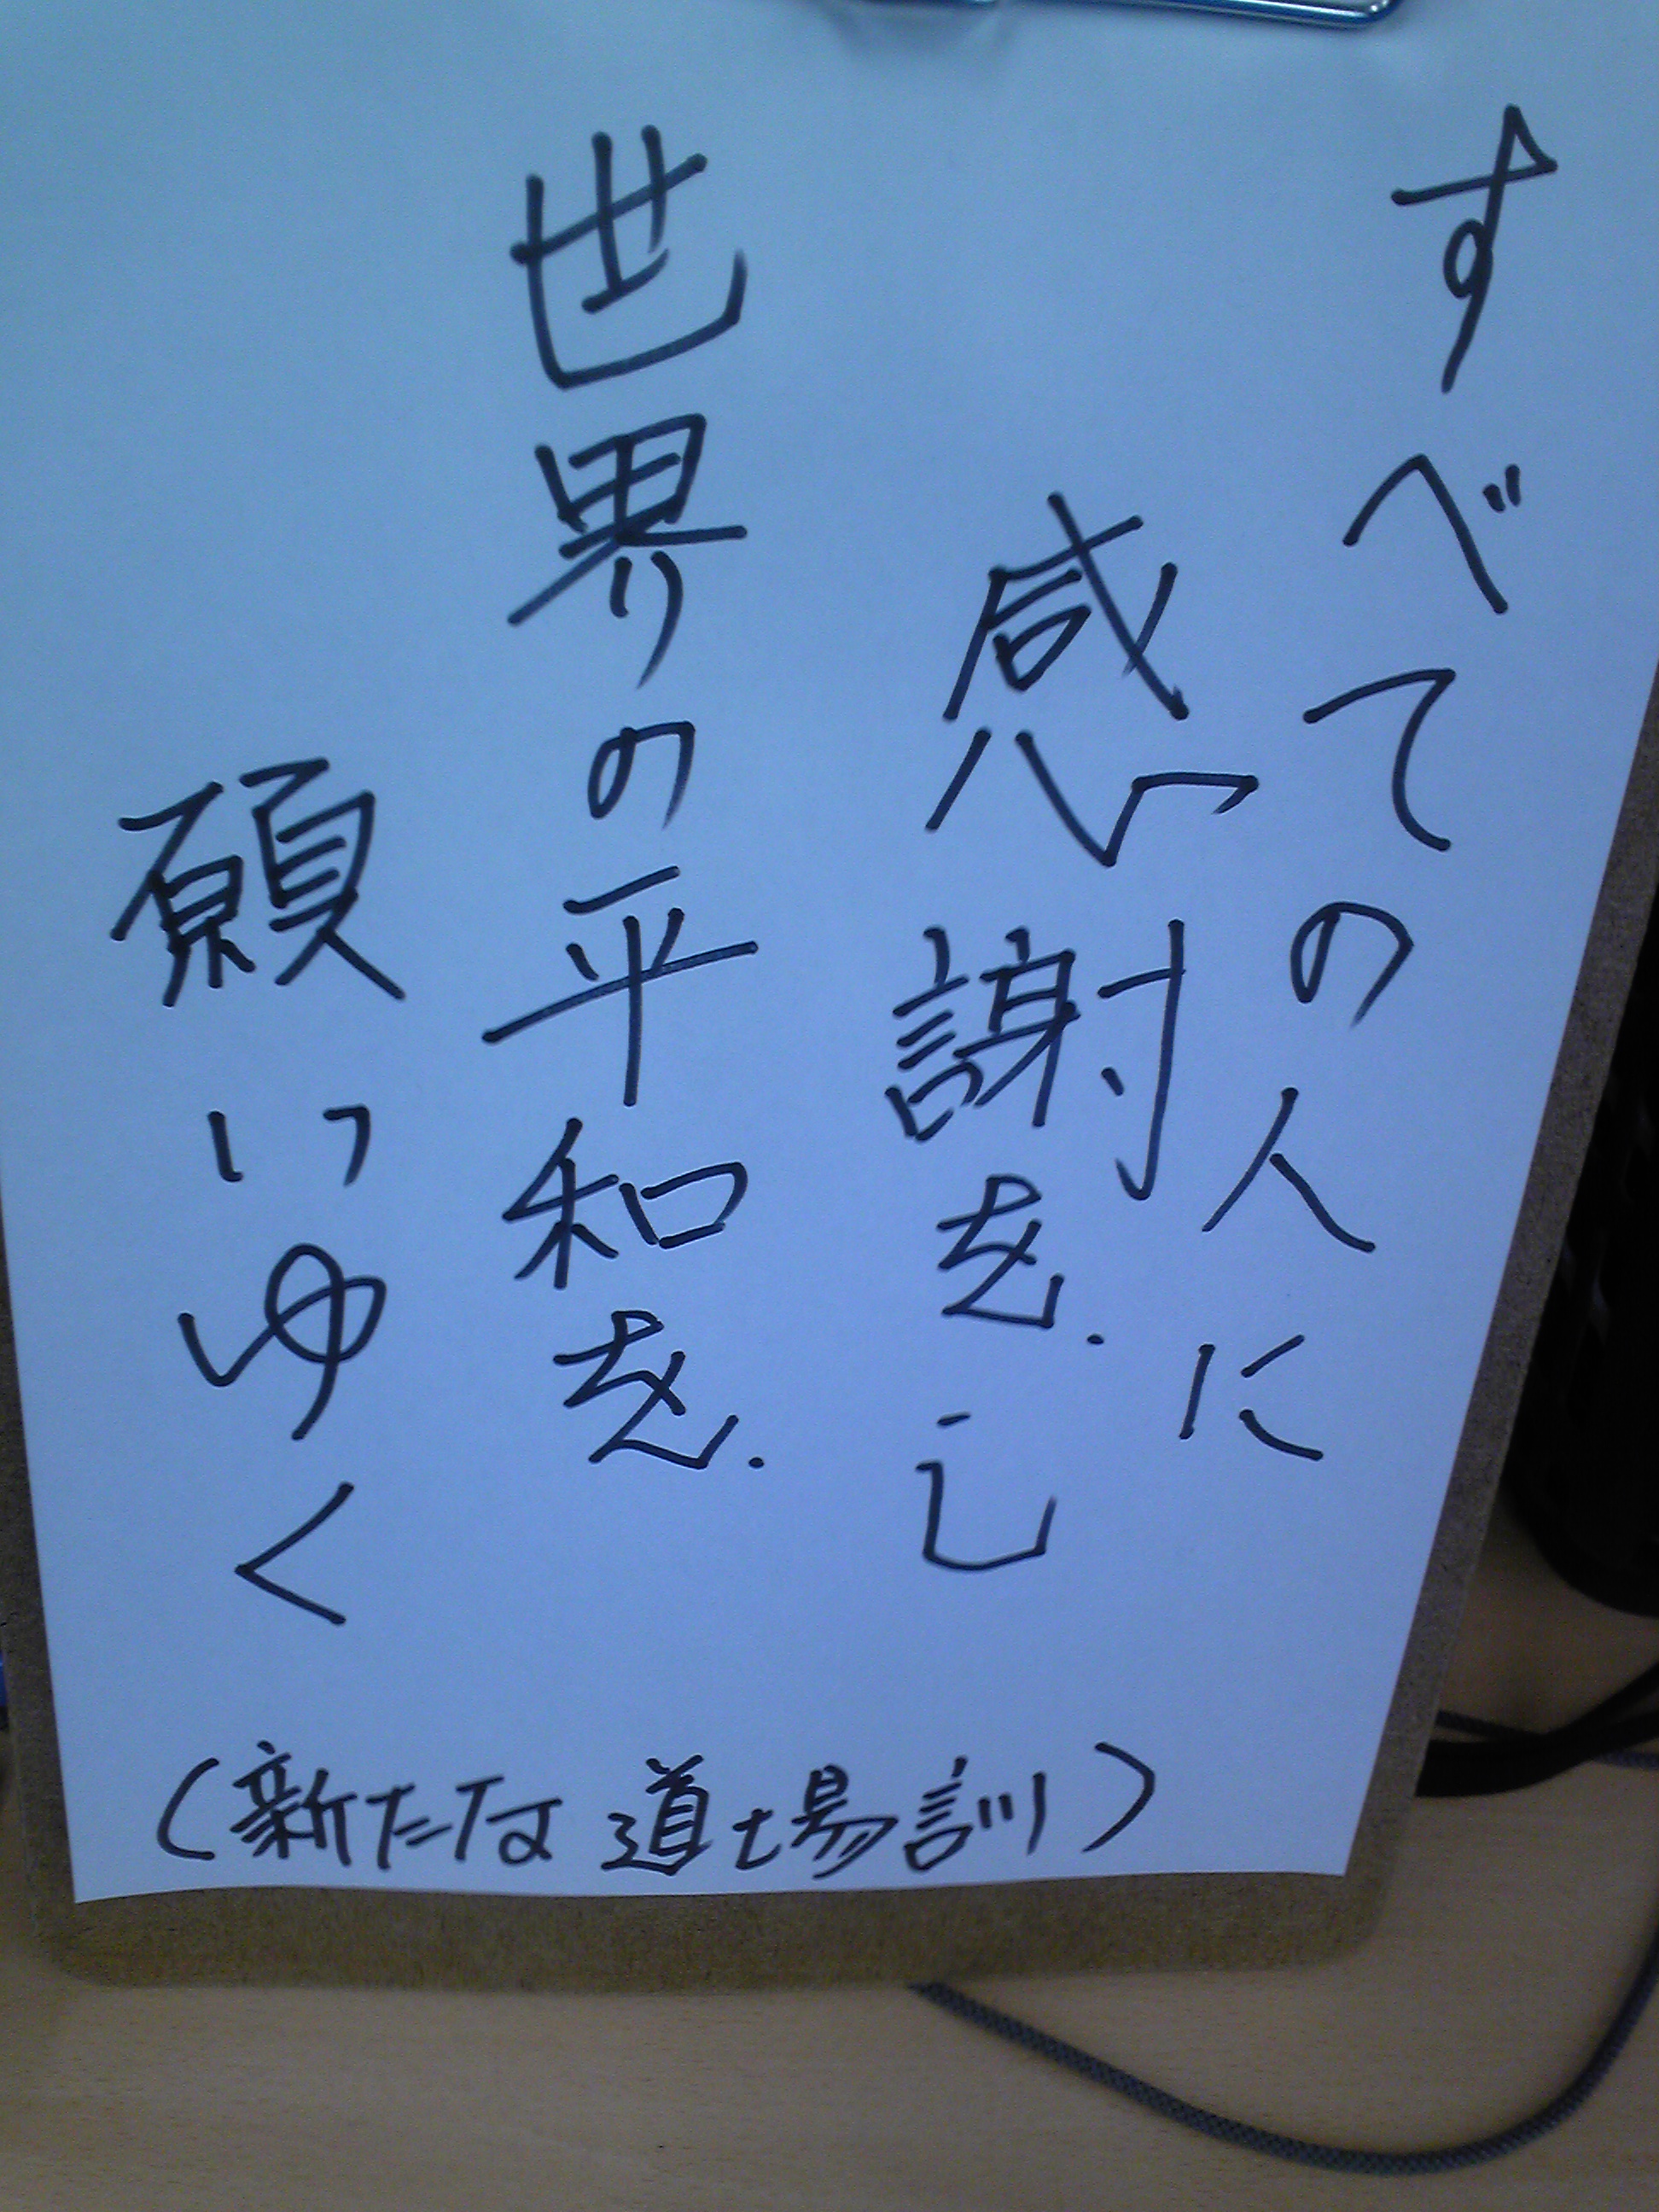 すべての人に
感謝を.し
世界の平和を.
願いゆく
(新たな道場訓)